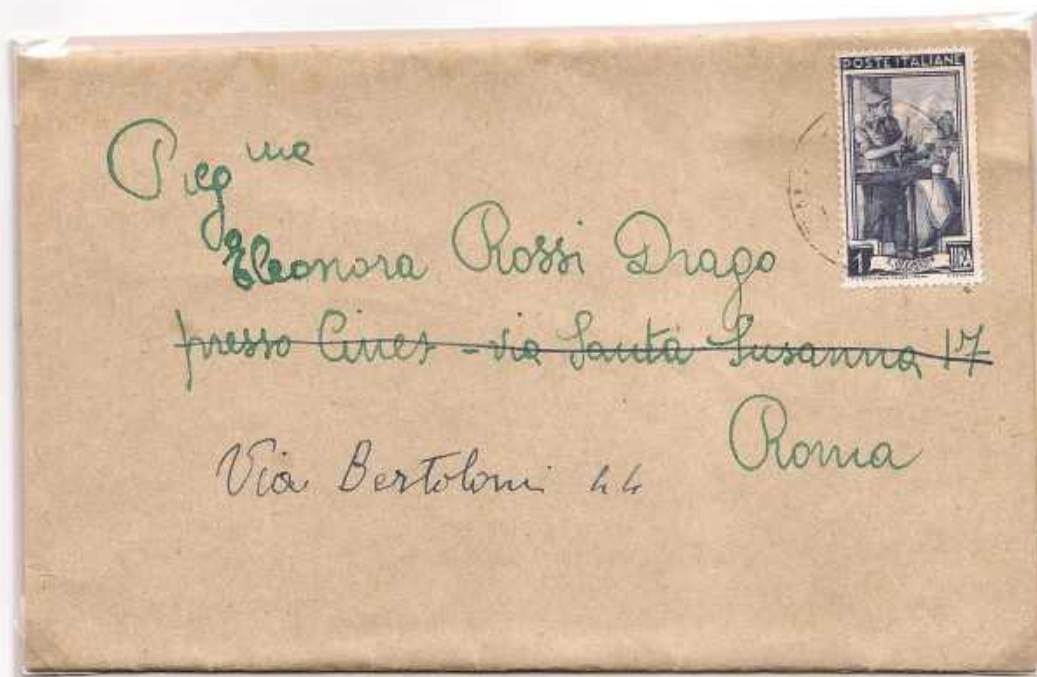 POSTE ITALIANE
1 LIRA
Preg ma
Eleonora Rossi Drago
presso Cines - via Santa Susanna 17
Roma
Via Bertoloni 44